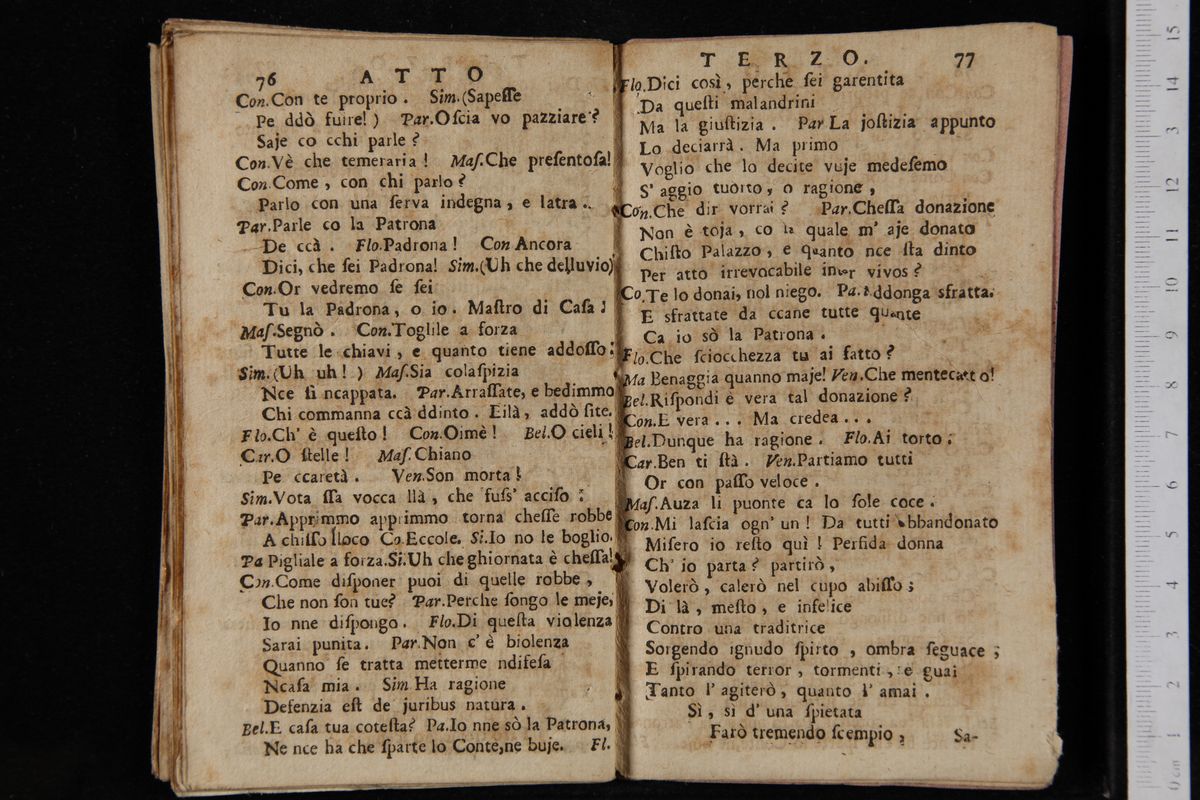 76 ATTO
Con.Con te proprio. Sim.(Sapeſſe
Pe ddò fuire!) Par.Oſcia vo pazziare?
Saje co cchi parle?
Con.Vè che temeraria! Maſ.Che preſentoſa!
Con.Come, con chi parlo?
Parlo con una ſerva indegna, e latra.
Par.Parle co la Patrona
De ccà. Flo.Padrona! Con Ancora
Dici, che ſei Padrona! Sim.(Uh che delluvio)
Con.Or vedremo ſe ſei
Tu la Padrona, o io. Maſtro di Caſa!
Maſ.Segnò. Con.Toglile a forza
Tutte le chiavi, e quanto tiene addoſſo:
Sim.(Uh uh!) Maſ.Sia colaſpizia
Nce ſi ncappata. Par.Arraſſate, e bedimmo
Chi commanna ccà ddinto. Eilà, addò ſite.
Flo.Ch' è queſto! Con.Oimè! Bel.O cieli!
Car.O ſtelle! Maſ.Chiano
Pe ccaretà. Ven.Son morta!
Sim.Vota ſſa vocca llà, che fuſs' acciſo:
Par.Apprimmo apprimmo torna cheſſe robbe
A chiſſo lloco Co.Eccole. Si.Io no le boglio.
Pa Pigliale a forza.Si.Uh che ghiornata è cheſſa!
Con.Come diſponer puoi di quelle robbe,
Che non ſon tue? Par.Perche ſongo le meje,
Io nne diſpongo. Flo.Di queſta violenza
Sarai punita. Par.Non c' è biolenza
Quanno ſe tratta metterme ndifeſa
Ncaſa mia. Sim Ha ragione
Defenzia eſt de juribus natura.
Bel.E caſa tua coteſta? Pa.Io nne sò la Patrona,
Ne nce ha che ſparte lo Conte,ne buje. Fl.
TERZO. 77
Flo.Dici così, perche ſei garentita
Da queſti malandrini
Ma la giuſtizia. Par La joſtizia appunto
Lo deciarrà. Ma primo
Voglio che lo decite vuje medeſemo
S' aggio tuorto, o ragione,
Con.Che dir vorrai? Par.Cheſſa donazione
Non è toja, co la quale m' aje donato
Chiſto Palazzo, e quanto nce ſta dinto
Per atto irrevocabile inter vivos?
Co.Te lo donai, nol niego. Pa. Addonga sfratta.
E sfrattate da ccane tutte quante
Ca io sò la Patrona.
Flo.Che ſciocchezza tu ai fatto?
Ma Benaggia quanno maje! Ven.Che mentecatto!
Bel.Riſpondi è vera tal donazione?
Con.E vera... Ma credea...
Bel.Dunque ha ragione. Flo.Ai torto:
Car.Ben ti ſtà. Ven.Partiamo tutti
Or con paſſo veloce.
Maſ.Auza li puonte ca lo ſole coce.
Con.Mi laſcia ogn' un! Da tutti abbandonato
Miſero io reſto quì! Perfida donna
Ch' io parta? partirò,
Volerò, calerò nel cupo abiſſo;
Di là, meſto, e infelice
Contro una traditrice
Sorgendo ignudo ſpirto, ombra ſeguace;
E ſpirando terror, tormenti, e guai
Tanto l' agiterò, quanto l' amai.
Sì, si d' una ſpietata
Farò tremendo ſcempio, Sa-
0 cm 1 2 3 4 5 6 7 8 9 10 11 12 13 14 15